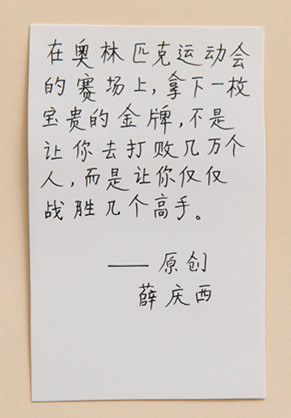 在奥林匹克运动会
的赛场上,拿下一枚
宝贵的金牌,不是
让你去打败几万个
人,而是让你仅仅
战胜几个高手。
——原创
薛庆西